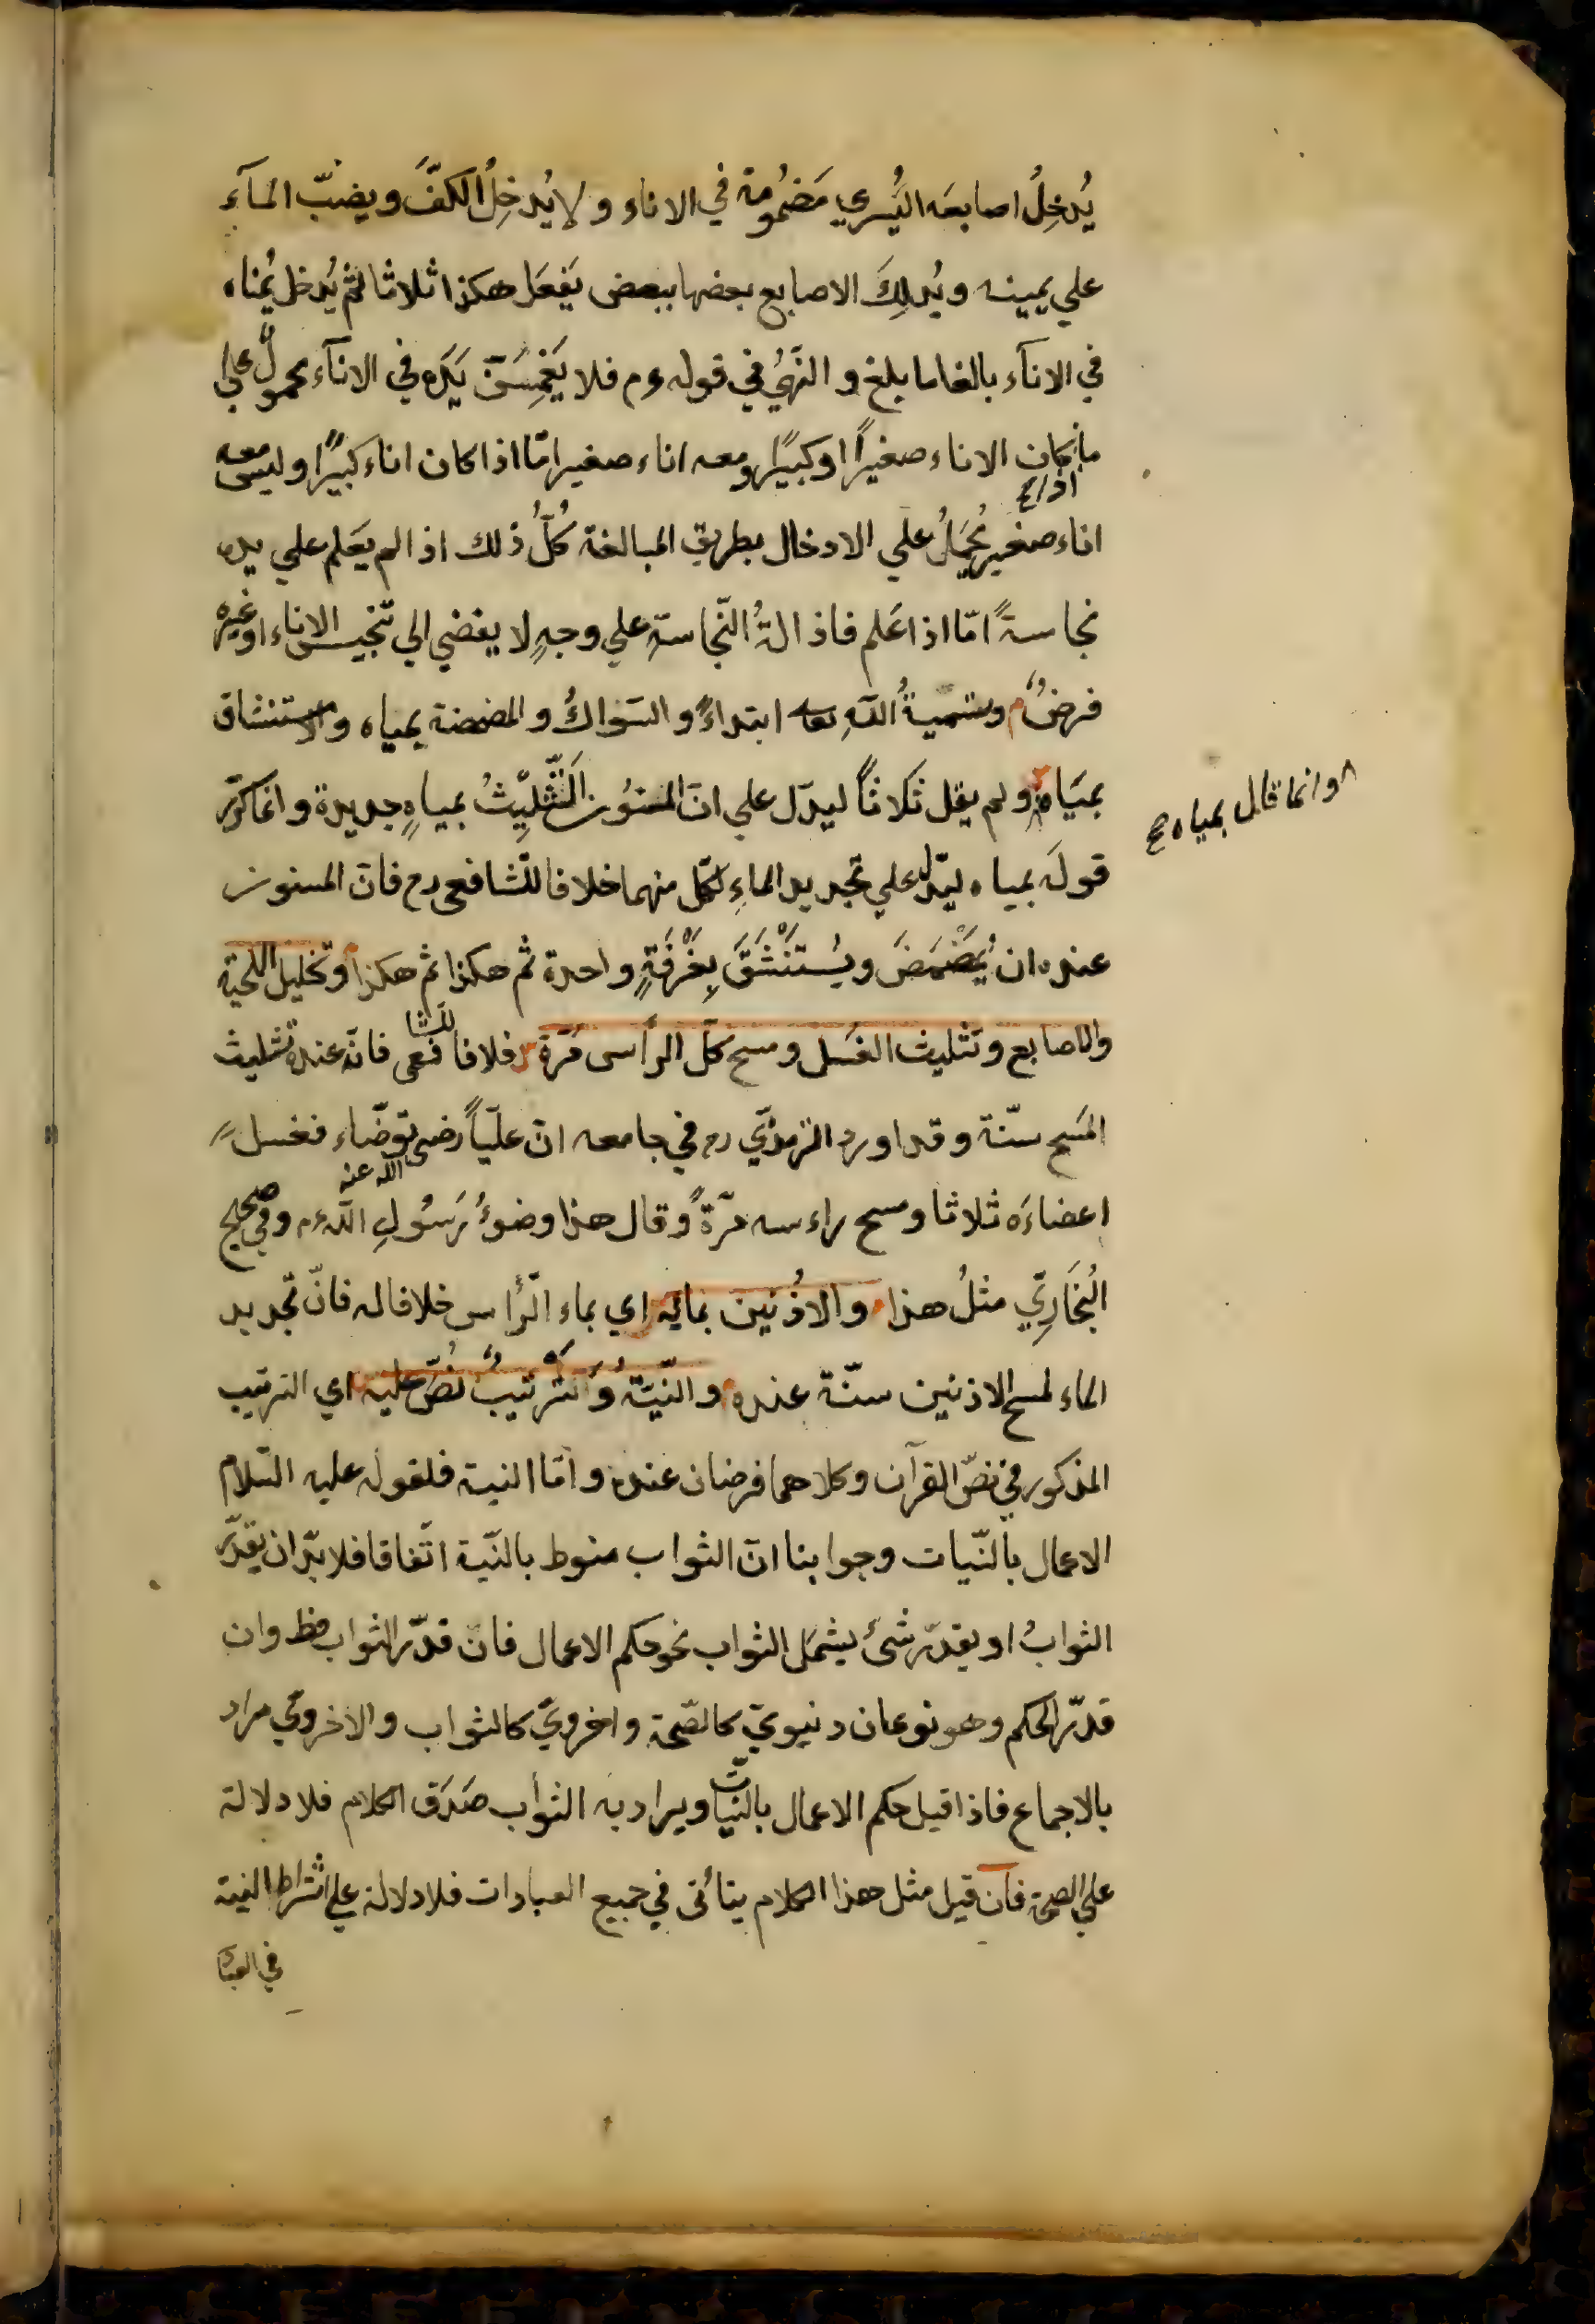 يُدخِلُ اصابعَه اليُسري مَضمُومة في الاناء ولا يُدخِلُ الكفَّ ويصبّ المآء
علي يمينه ويُدلِكَ الاصابع بعضها ببعض يَفعَل هكذا ثلاثا ثم يُدخل يُمناه
في الانآء بالغا ما بلغ والنّهيُ في قوله ءم فلا يَغمِسَنّ يَدَه في الانآء محمولٌ علي
ما اذا كان الاناء صغيراً او كبيًرا ومعه اناء صغير امّا اذا كان اناء كبيرًا وليس معه
اناء صغير يُحمَلُ علي الادخال بطريق المبالغة كُلُّ ذلك اذا لم يَعلم علي يده
نجاسةً امّا اذا عَلم فاذالةُ النّجاسةِ علي وجهٍ لا يفضي الي تنجيس الاناء او غيره
فرضٌ وتسميةُ اللّهِ تعا ابتداءً والسّواكُ والمضمضة بمياه والاستنشاق
بميَاه ولم يقل ثَلاثاً ليدّل علي انّ المسنُون التَّثلِيثُ بمياهٍ جديدة وانما كرّر
وانما قال بمياه صح
قولَه بمياه ليدّل علي تجديد الماءِ لكلّ منهما خلافا للشّافعي رح فانّ المسنون
عنده ان يُمَضْمِضَ ويُستَنْشَقَ بِغَرْفَةٍ واحدة ثم هكذا ثم هكذا وتخليل اللّحية
والاصابع وتثليث الغسل ومسح كلّ الرأس مَرّة خلافا للشافعي فانّه عنده تثليث
المسَح سنّة وقد اورد الترمذيّ رح في جامعه انّ عليّاً رضي الله عنه توضّاء فغسل
اعضاءَه ثلاثا ومسح راءسه مرّةً وقال هذا وضوءُ رَسُولِ اللّه ءم وفي صحيح
البُخَارِيّ مثلُ هذا والاذُنين بمائه اي بماء الرّأس خلافا له فانّ تجديد
الماء لمسح الاذنين سنّة عنده والنّيّةُ وَالتّرتيبُ نُصّ عليه اي الترتيب
المذكور في نصّ القرآن وكلاهما فرضان عنده وامّا النية فلقوله عليه السّلام
الاعمال بالنّيات وجوابنا انّ الثواب منوط بالنّية اتّفاقا فلا بدّ ان يقدّر
الثوابُ او يقدّر شئ يشمل الثواب نحو حكم الاعمال فان قدّر الثواب فظ وان
قدّر الحكم وهو نوعان دنيويّ كالصّحة واخرويّ كالثواب والاخرويّ مراد
بالاجماع فاذا قيل حكم الاعمال بالنّيات ويراد به الثواب صَدَق الكلام فلا دلالة
علي الصحة فان قيل مثل هذا الكلام يتأتى في جميع العبادات فلا دلالة علي اشتراط النية
في العبا